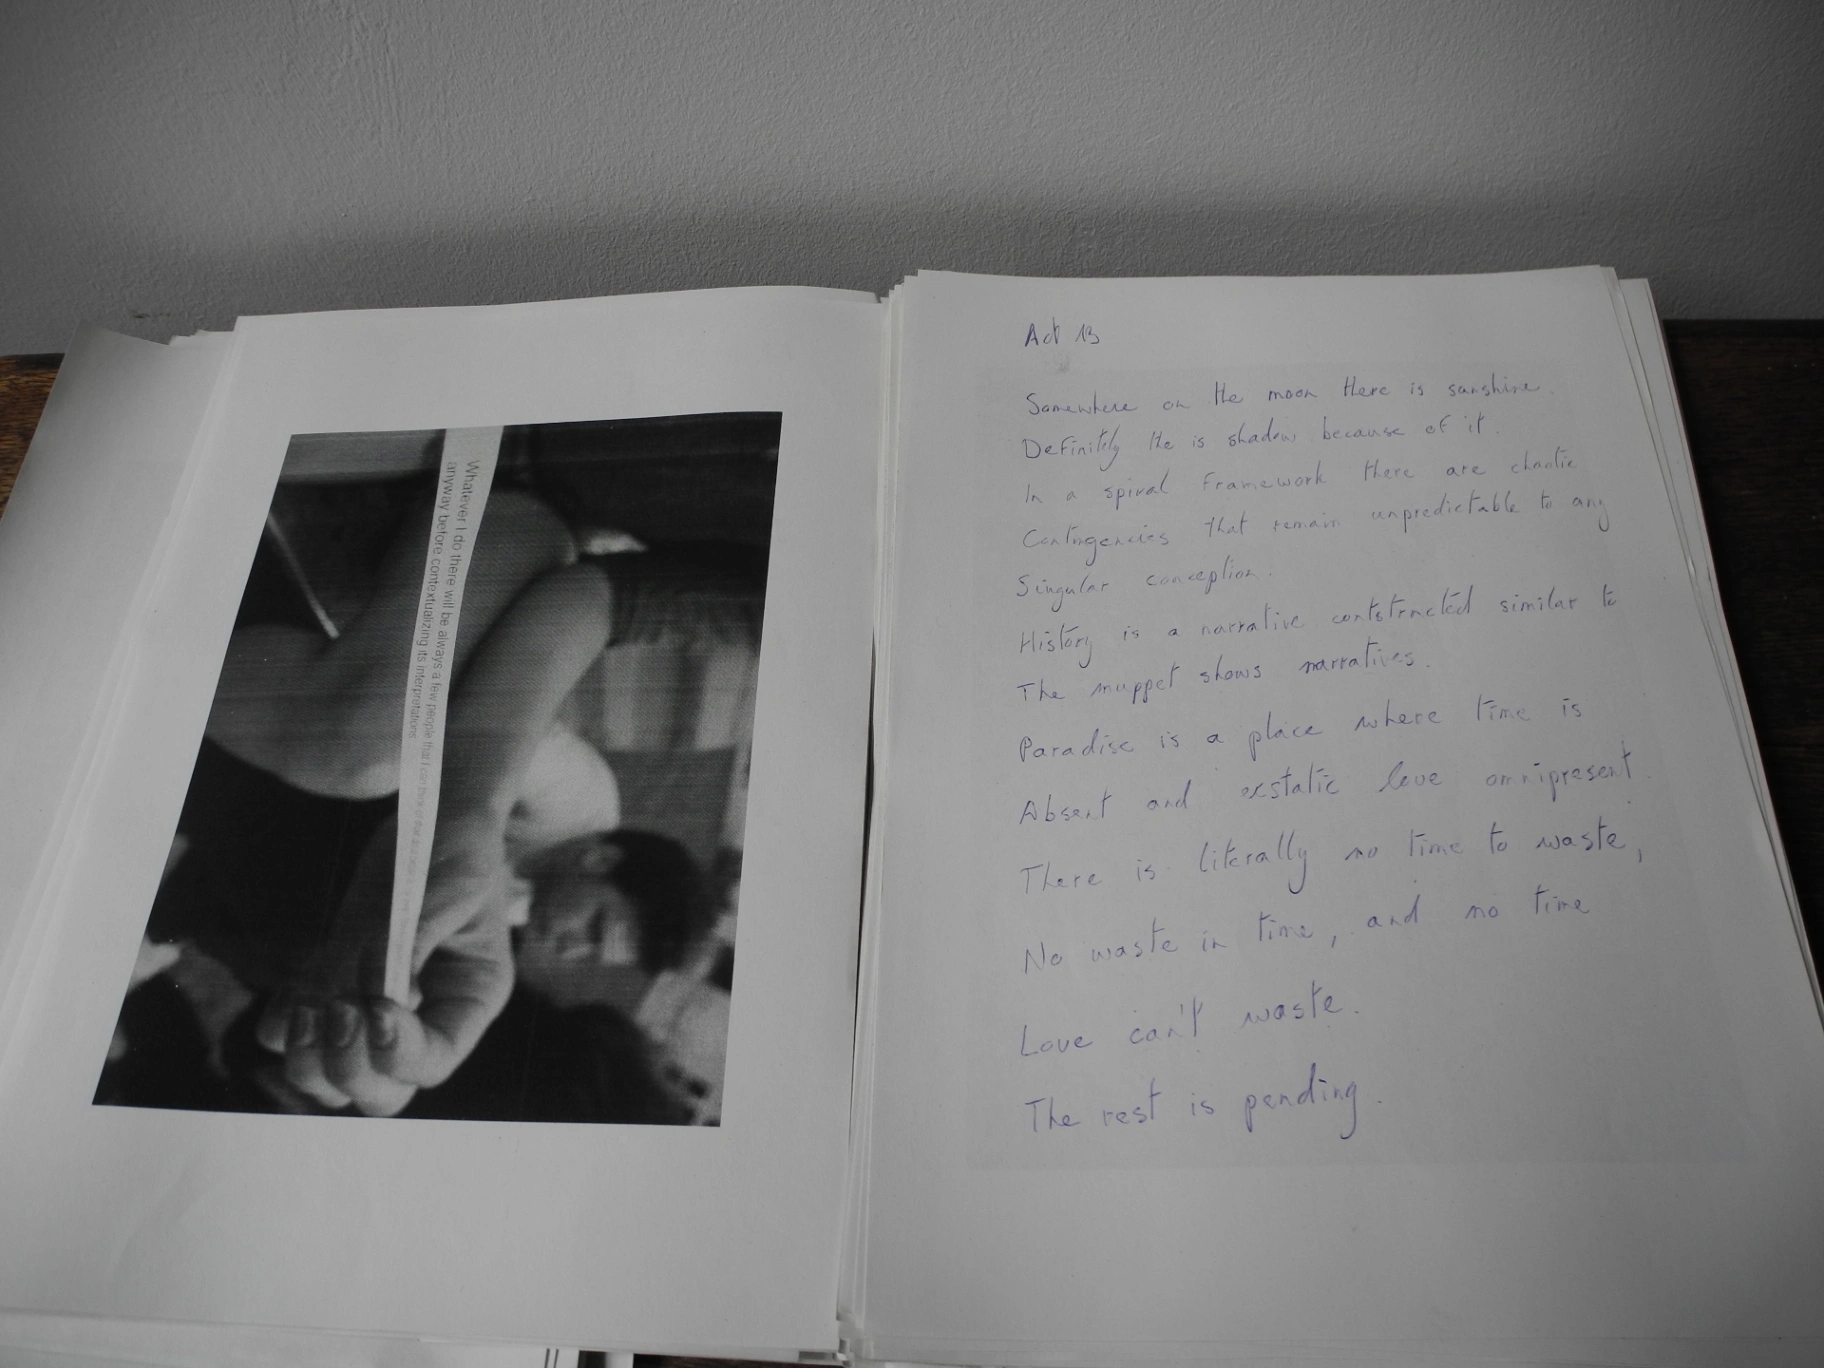 Whatever I do there will be always a few people that I can think of that
anyway before contextualizing its interpretations
Act 13
Somewhere on the moon there is sunshine.
Definitely the is shadow because of it.
In a spiral framework there are chaotic
Contingencies that remain unpredictable to any
Singular conception.
History is a narrative contstructed similar to
The muppet shows narratives.
Paradise is a place where time is
Absent and exstatic love omnipresent.
There is literally no time to waste,
No waste in time, and no time
Love can't waste.
The rest is pending.